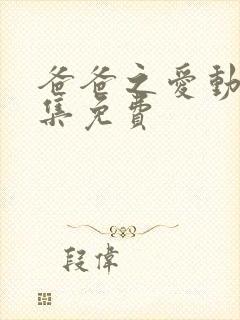 爸爸之愛動
集免費
段偉